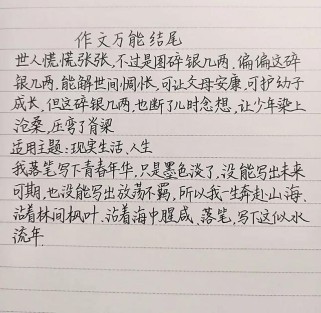 作文万能结尾
世人慌慌张张,不过是图碎银几两.偏偏这碎
银几两.能解世间惆怅,可让父母安康,可护幼子
成长,但这碎银几两,也断了儿时念想,让少年染上
沧桑,压弯了脊梁
适用主题:现实生活,人生
我落笔写下青春年华,只是墨色淡了,没能写出未来
可期,也没能写出放荡不羁,所以我一生奔赴山海.
沾着林间枫叶.沾着海中腥咸.落笔,写下这似水
流年.